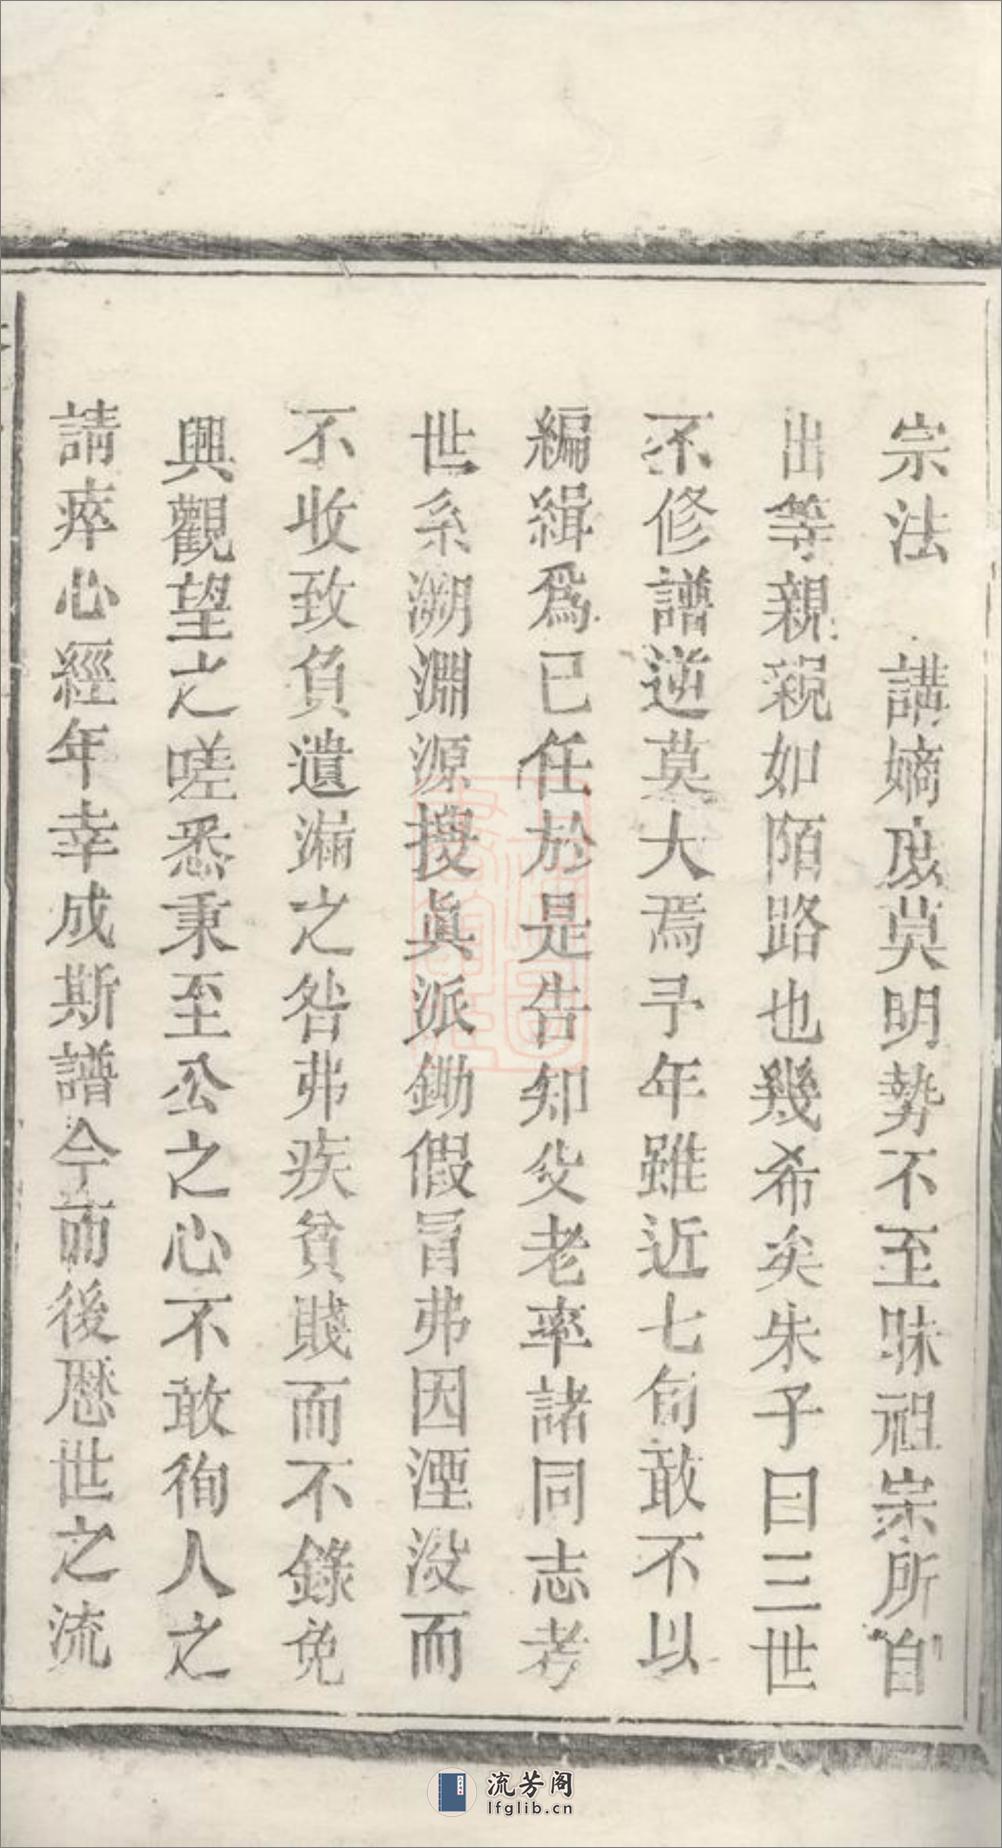 宗法 講嫡庶莫明勢不至昧祖宗所自
出等親親如陌路也幾希矣朱子曰三世
不修譜逆莫大焉予年雖近七旬敢不以
編緝爲已任於是告知父老率諸同志考
世系溯淵源搜眞派鋤假冒弗因湮沒而
不收致負遺漏之咎弗疾貧賤而不錄免
興觀望之嗟悉秉至公之心不敢徇人之
請瘁心經年幸成斯譜今而後歷世之流
流芳阁
lfglib.cn